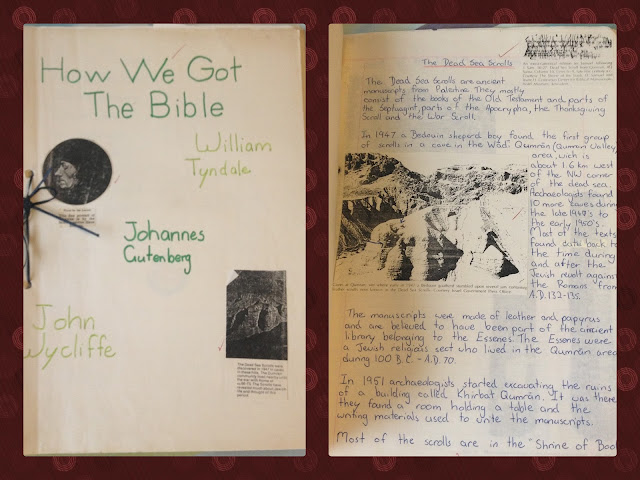 How We Got
The Bible
William
Tyndale
Johannes
Gutenberg
John
Wycliffe
The Dead Sea Scrolls were
The Dead Sea Scrolls
The Dead Sea Scrolls are ancient
manuscripts from Palestine. They mostly
consist of the books of the Old Testament and, parts of
the Septuagint, parts of the Apocrypha, the Thanksgiving
Scroll and the War Scroll.
In 1947 a Bedouin sheperd boy found, the first group
of scrolls in a cave in the Wādi Qumrān (Qumran Valley)
area, wich is
about 1.6 km west
of the NW corner
of the dead sea.
Archaeologists found
10 more caves during
the late 1940's to
the early 1950's.
Most of the texts
found date back to
the time during
and after the
Jewish revolt against
the Romans from
A.D. 132-135.
The manuscripts were made of leather and papyrus
and are believed to have been part of the ancient
library belonging to the Essenes. The Essenes were
a Jewish religious sect who lived in the Qumrān area
during 100 B.C. - A.D. 70.
In 1951 archaeologists started excavating the ruins
of a building called Khirbat Qumrān. It was there
they found a room holding a table and the
writing materials used to write the manuscripts.
Most of the scrolls are in the "Shrine of Book